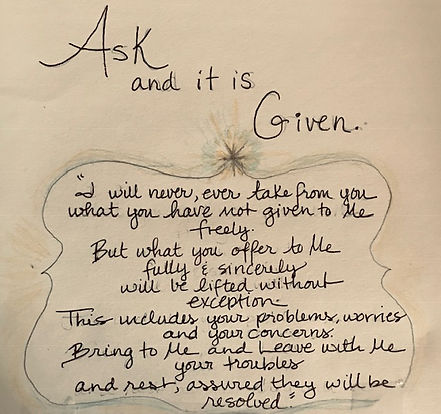 Ask
and it is
Given.
"I will never, ever take from you
what you have not given to Me
freely.
But what you offer to Me
fully & sincerely
will be lifted without
exception.
This includes your problems, worries
and your concerns.
Bring to Me and Leave with Me
your troubles
and rest, assured they will be
resolved"